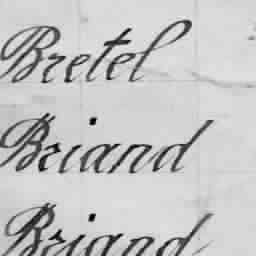 Bretel
Briand
Briand